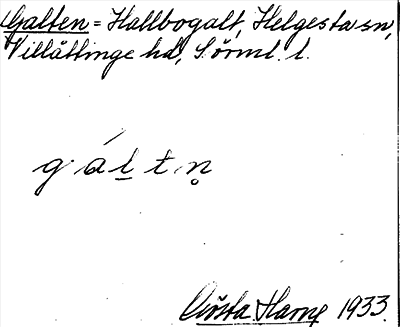 Galten = Hallbogalt, Helgesta sn,
Villåttinge hd, Sörml. l.
g á l̲ t n̥
Gösta Harne 1933.